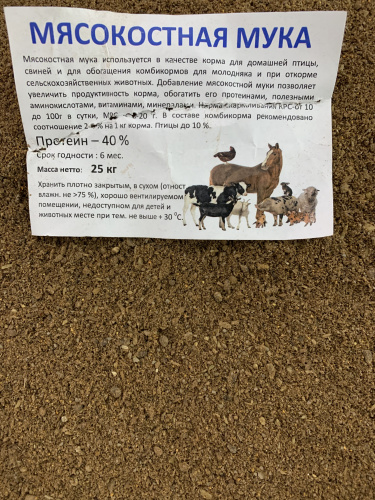 МЯСОКОСТНАЯ МУКА
Мясокостная мука используется в качестве корма для домашней птицы,
свиней и для обогащения комбикормов для молодняка и при откорме
сельскохозяйственных животных. Добавление мясокостной муки позволяет
увеличить продуктивность корма, обогатить его протеинами, полезными
аминокислотами, витаминами, минералами. Норма скармливания КРС-от 10
до 100г в сутки, 20 г. В составе комбикорма рекомендовано
соотношение % на 1 кг корма. Птицы до 10 %.
Протеин – 40 %
Срок годности : 6 мес.
Масса нетто: 25 кг
Хранить плотно закрытым, в сухом (отност
влажн. не >75 %), хорошо вентилируемом
помещении, недоступном для детей и
животных месте при тем. не выше + 30 °С.